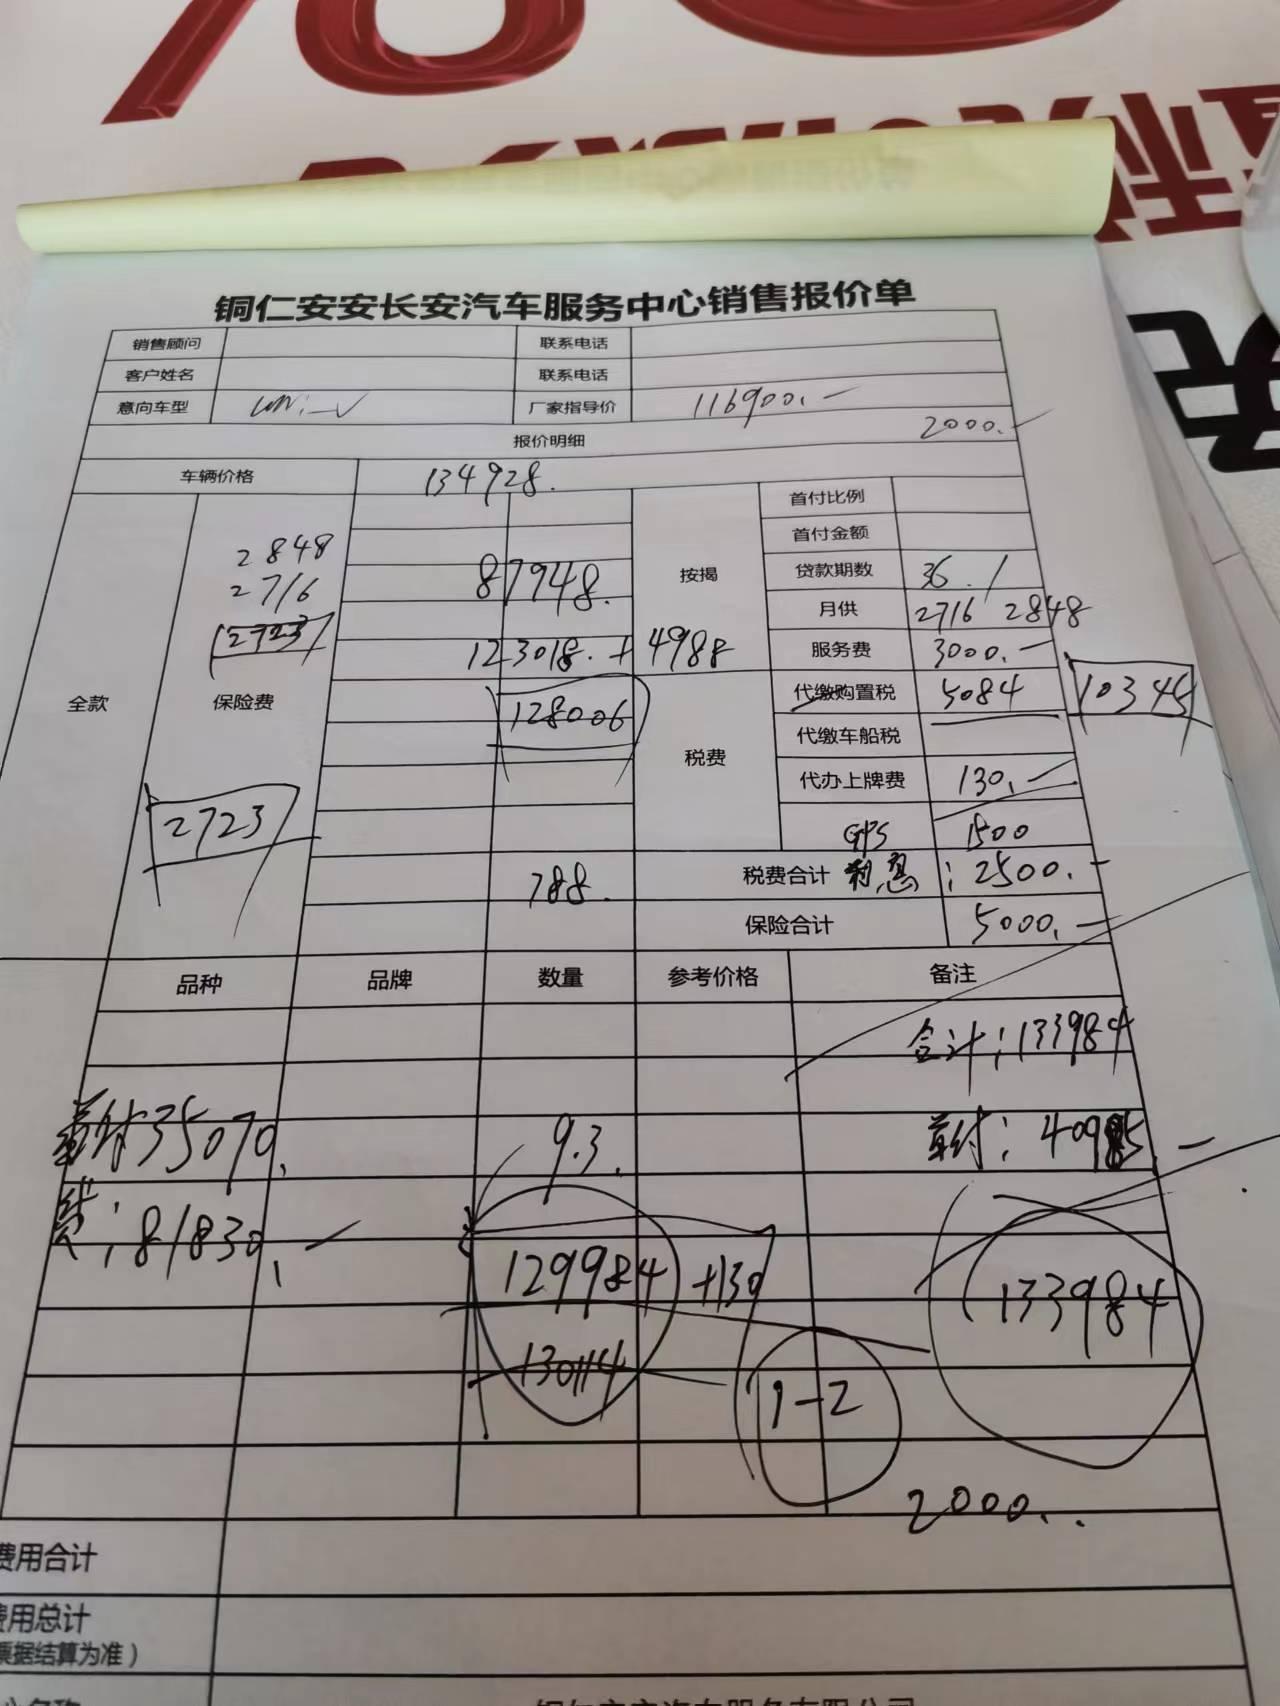 铜仁安安长安汽车服务中心销售报价单
销售顾问 联系电话
客户姓名 联系电话
意向车型 uni-V 厂家指导价 116900.-
报价明细 2000.-
车辆价格 134928.
首付比例
首付金额
2848
2716
2723
87948.
按揭
贷款期数 36.1
月供 2716 2848
123018.+4988
服务费 3000.-
全款 保险费
128006
税费
代缴购置税 5084 10345
代缴车船税
代办上牌费 130.-
2723
GPS 1500
788.
税费合计 利息:2500.-
保险合计 5000.-
品种 品牌 数量 参考价格 备注
合计:133984
首付35070. 9.3. 首付:40985.-
贷:81830.-
129984+130
133984
130114
1-2
2000..
费用合计
费用总计
票据结算为准)